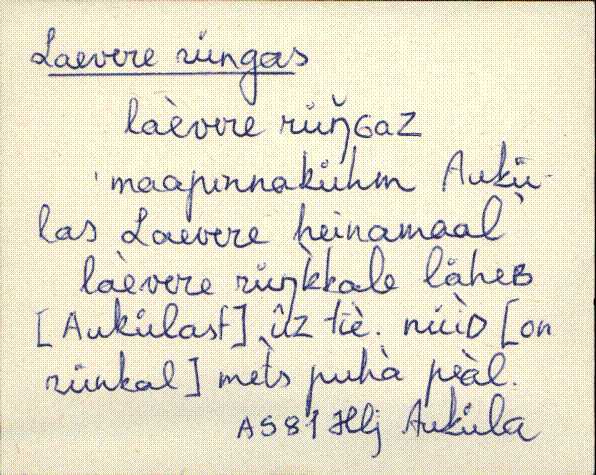 Laevere rüngas
laèvere rüŋ̆ɢaz
'maapinnakühm Aukü-
las Laevere heinamaal'
làevere rüŋ̀kkale läheʙ
[Aukülast] ûz tiè. nüìᴅ [on
rünkal] mèts puhà peàl.
AS 81 Hlj Auküla